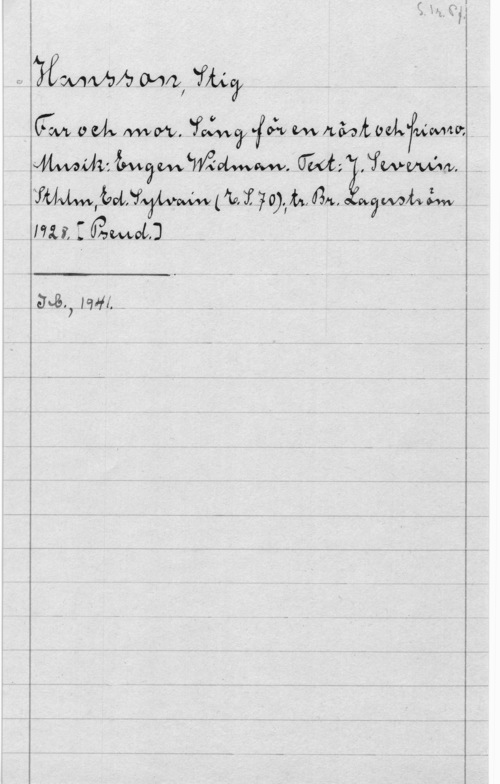 S. 1r. Pf.
Hansson, Stig
Far och mor. Sång för en röst och piano.
Musik: Eugen Widman. Text: J. Severin.
Sthlm, Ed. Sylvain (E. S. 70); tr. Br. Lagerström
1928. [Pseud.]
J.B., 1941.